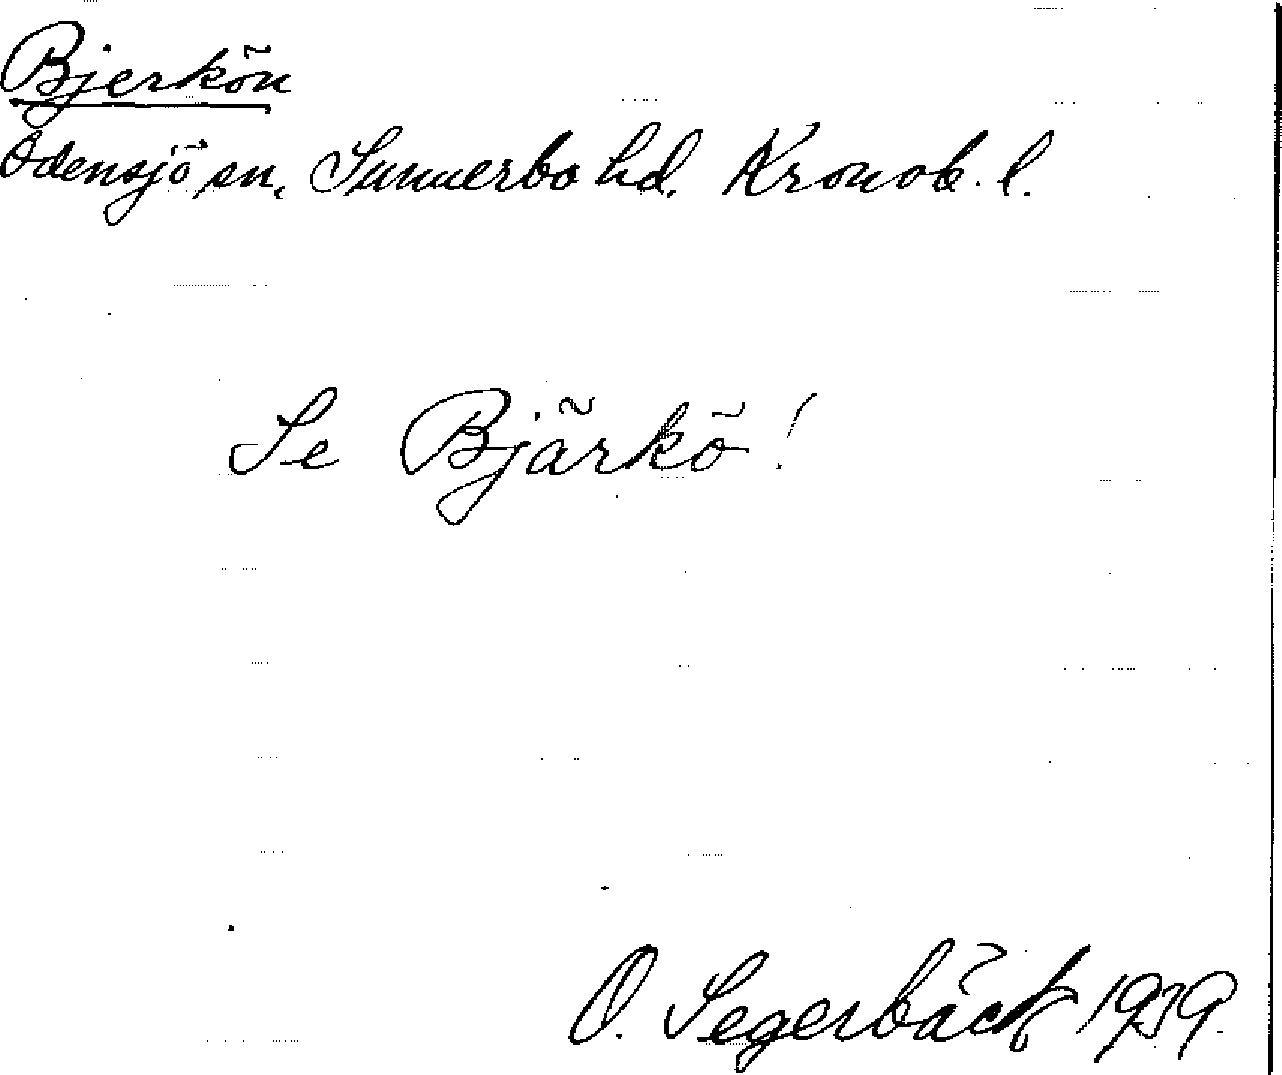 Bjerkön
Odensjö sn, Sunnerbo hd. Kronob. l.
Se Bjärkö!
O. Segerbäck 1939.